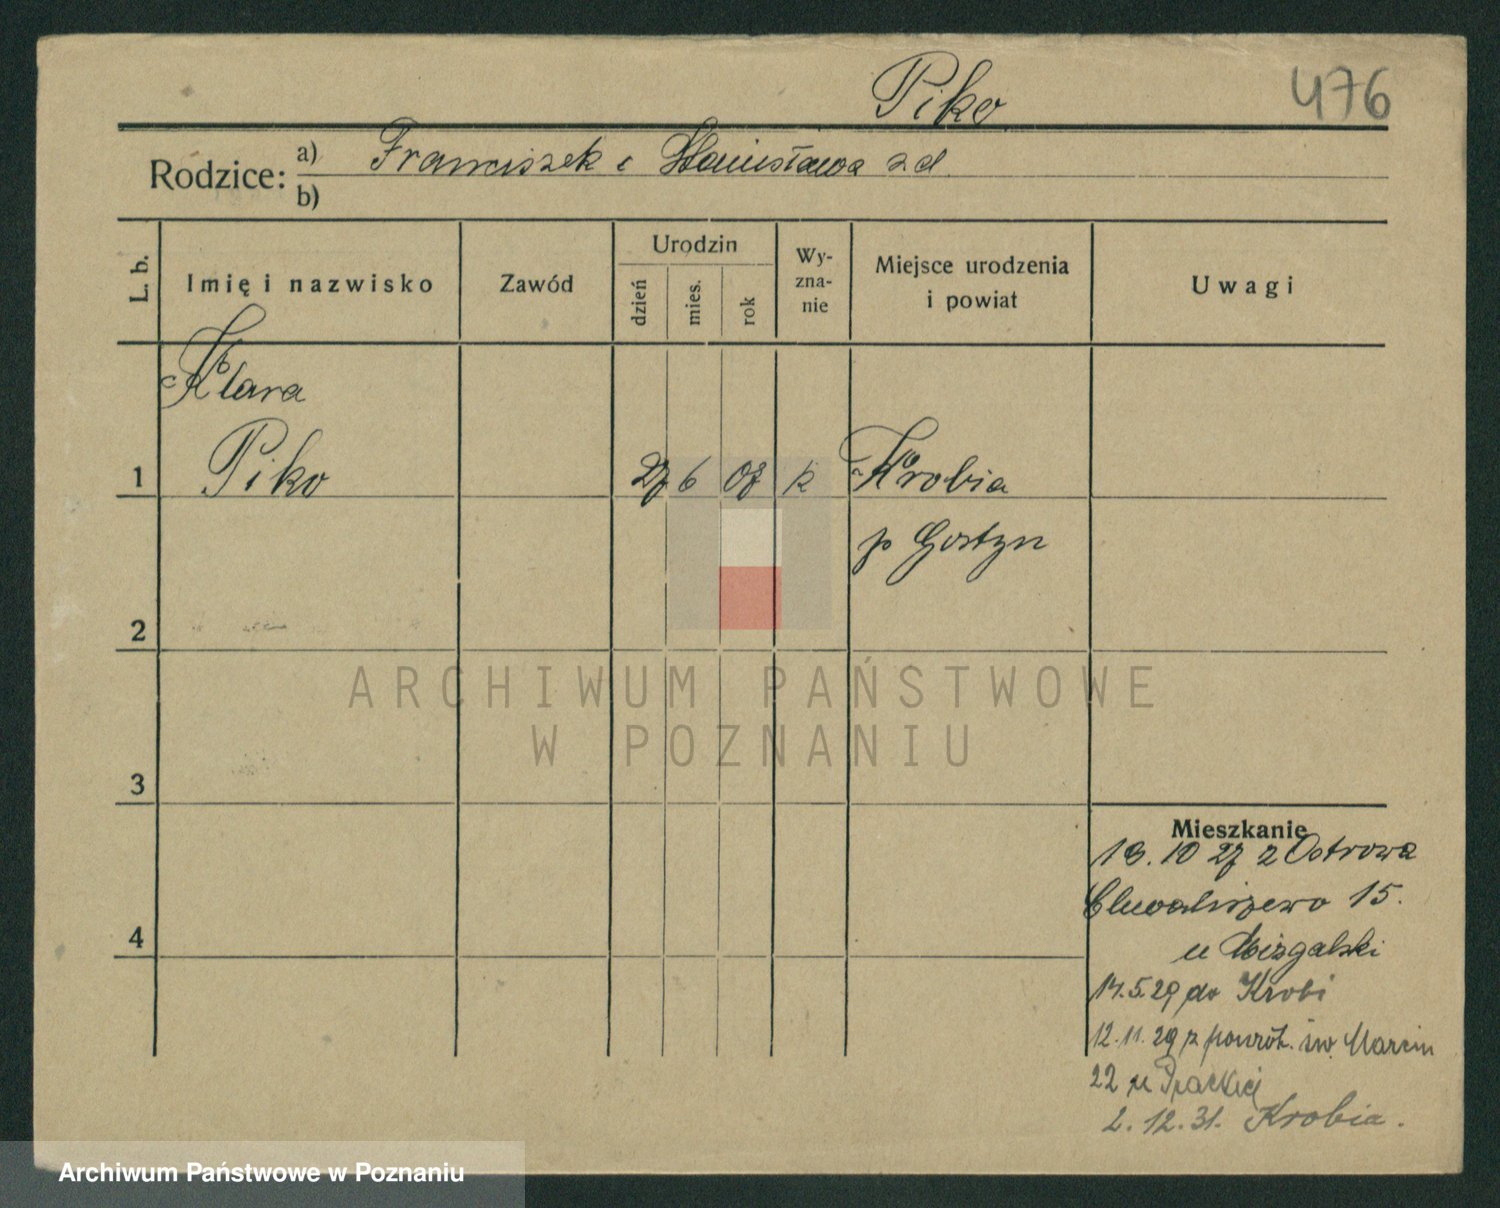 Piko
476
Rodzice: a) Franciszek i Stanisława zd.
b)
L. b.
Imię i nazwisko
Zawód
Urodzin
dzień
mies.
rok
Wy-
zna-
nie
Miejsce urodzenia
i powiat
Uwagi
Klara
1 Piko 27 6 07 k Krobia
p Gostyn
2
ARCHIWUM PAŃSTWOWE
W POZNANIU
3
Mieszkanie
18. 10 27 z Ostrowa
Chwaliszewo 15.
u
4
14.5.29 do Krobi
12.11.29 z powrót. św. Marcin
22 u
2. 12. 31. Krobia.
Archiwum Państwowe w Poznaniu